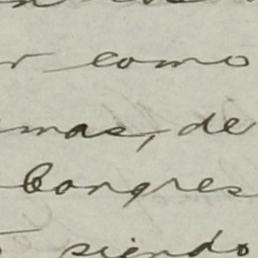 r como
mas, de
Congres
siendo